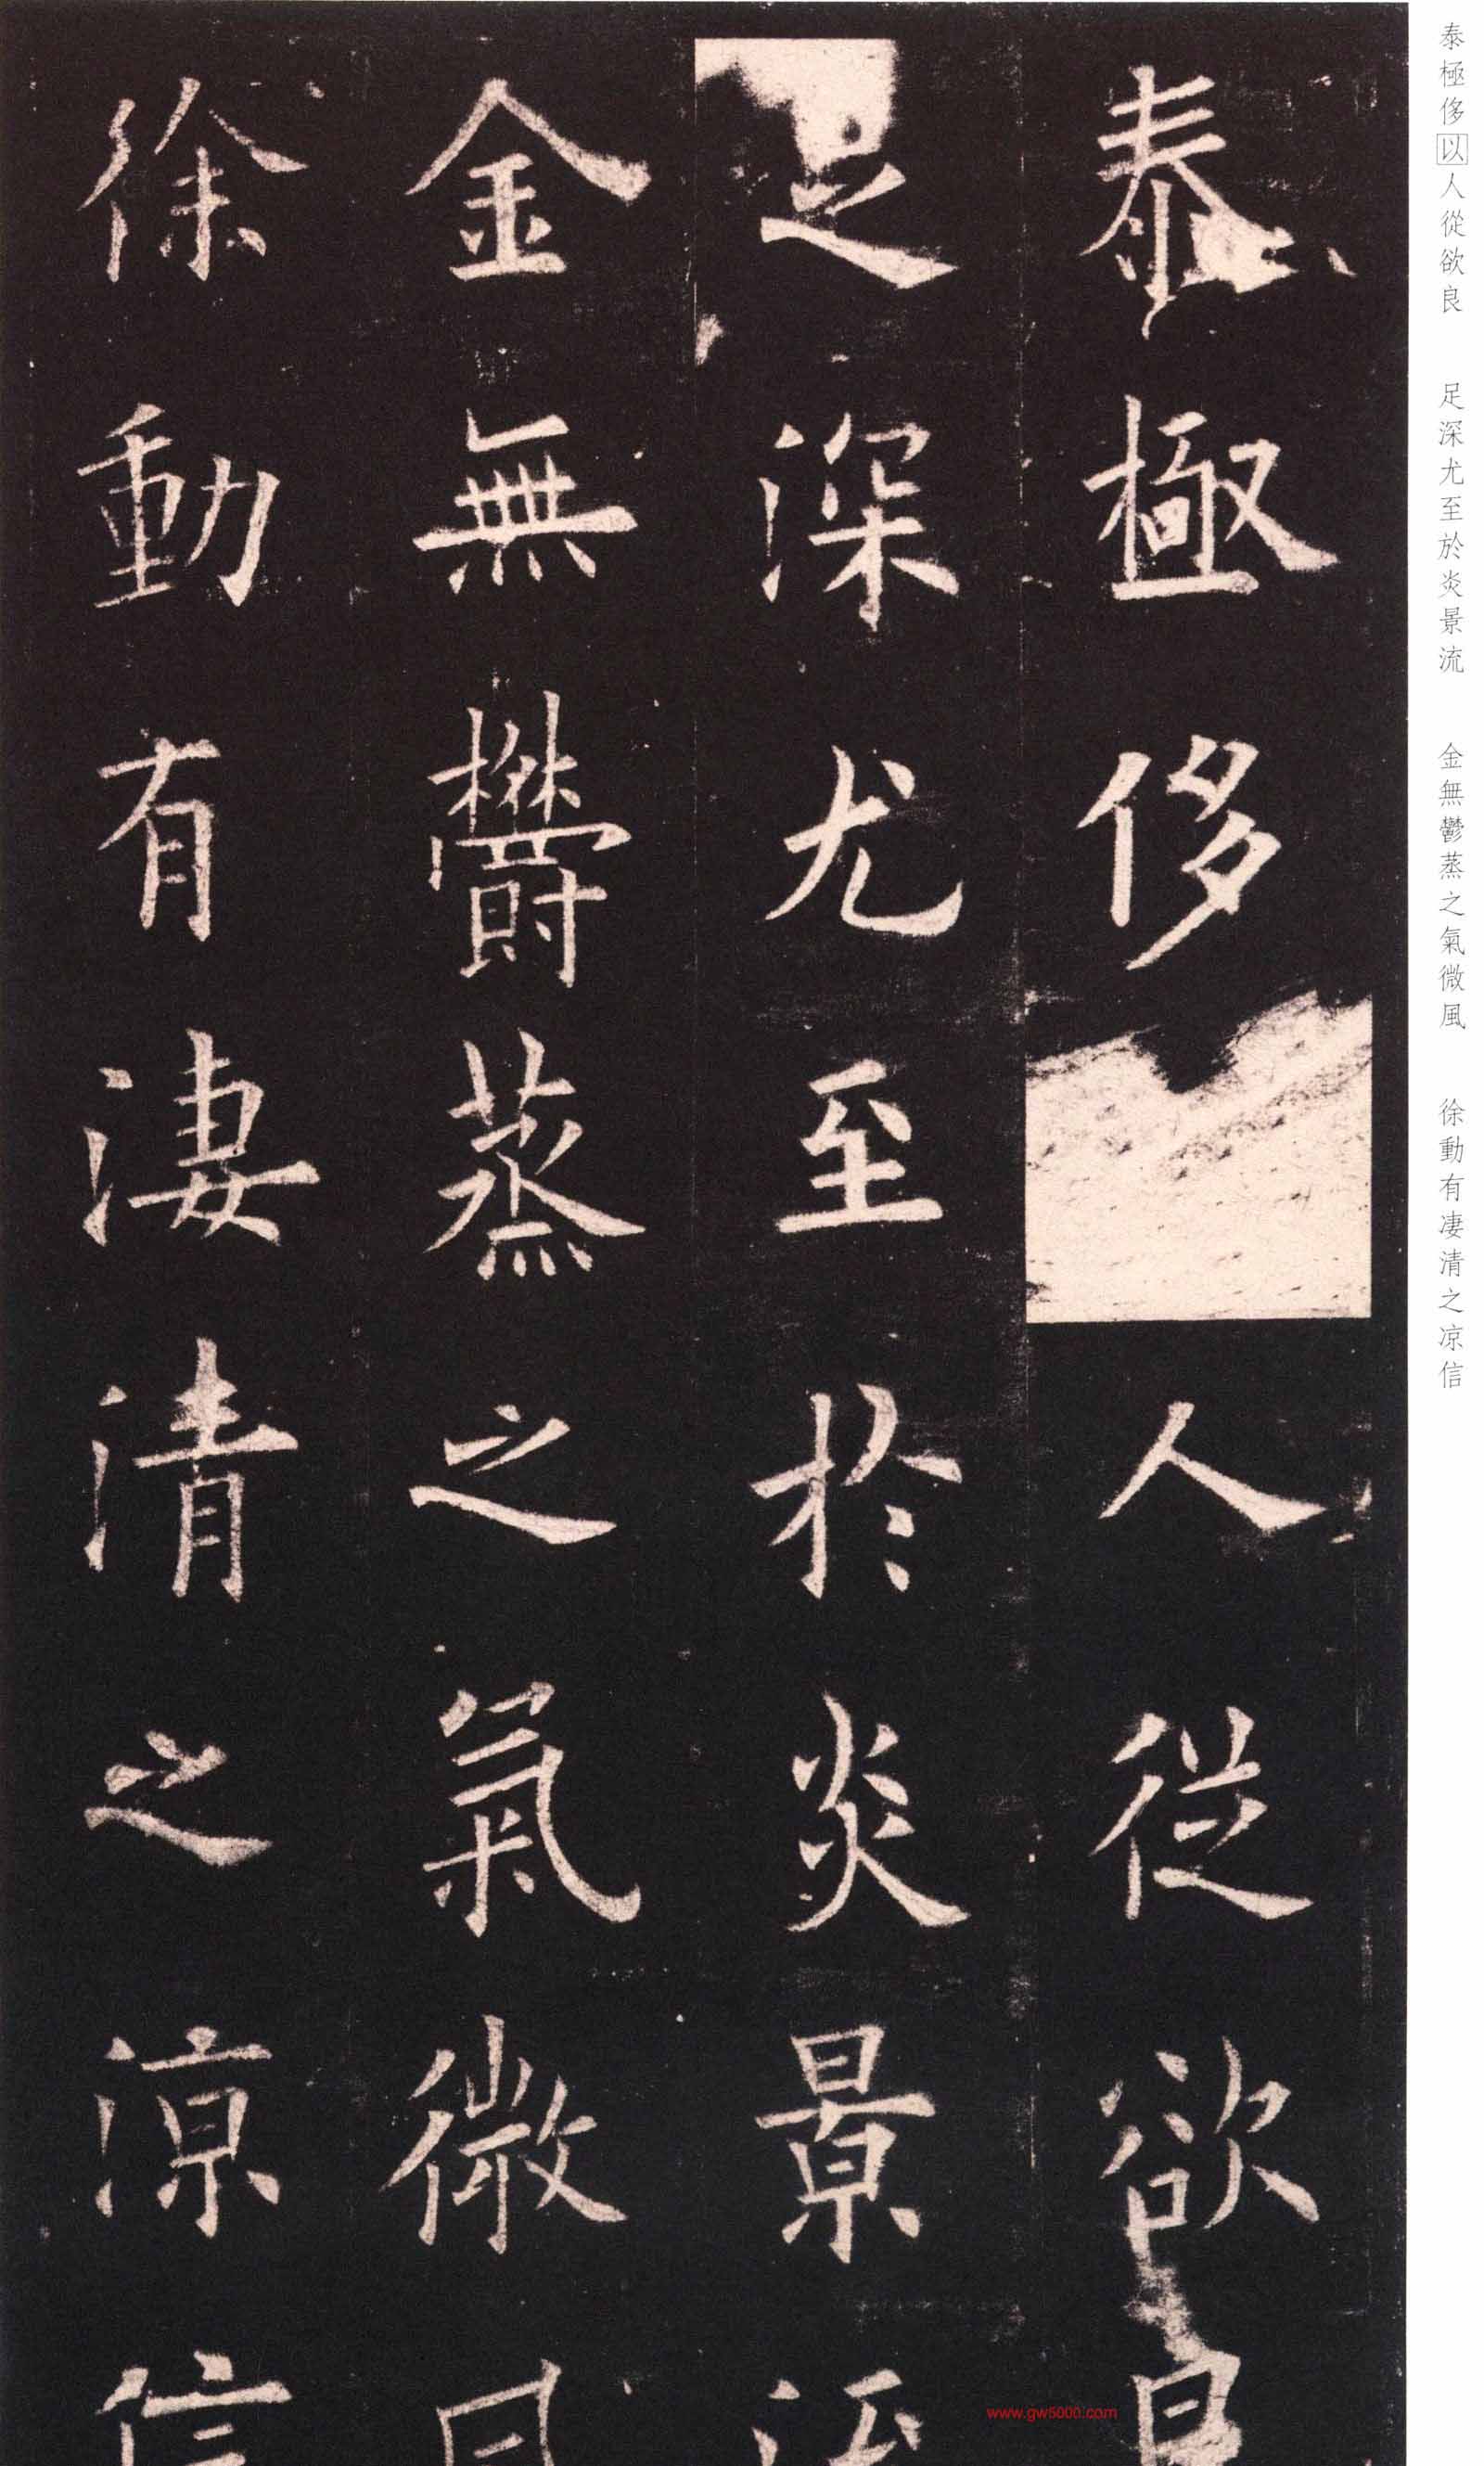 泰極侈人從欲良
足深尤至於炎景流
金無鬱蒸之氣微風
徐動有淒清之涼信
泰極侈以人從欲良
足深尤至於炎景流
金無鬱蒸之氣微風
徐動有凄清之凉信
www.gw5000.com